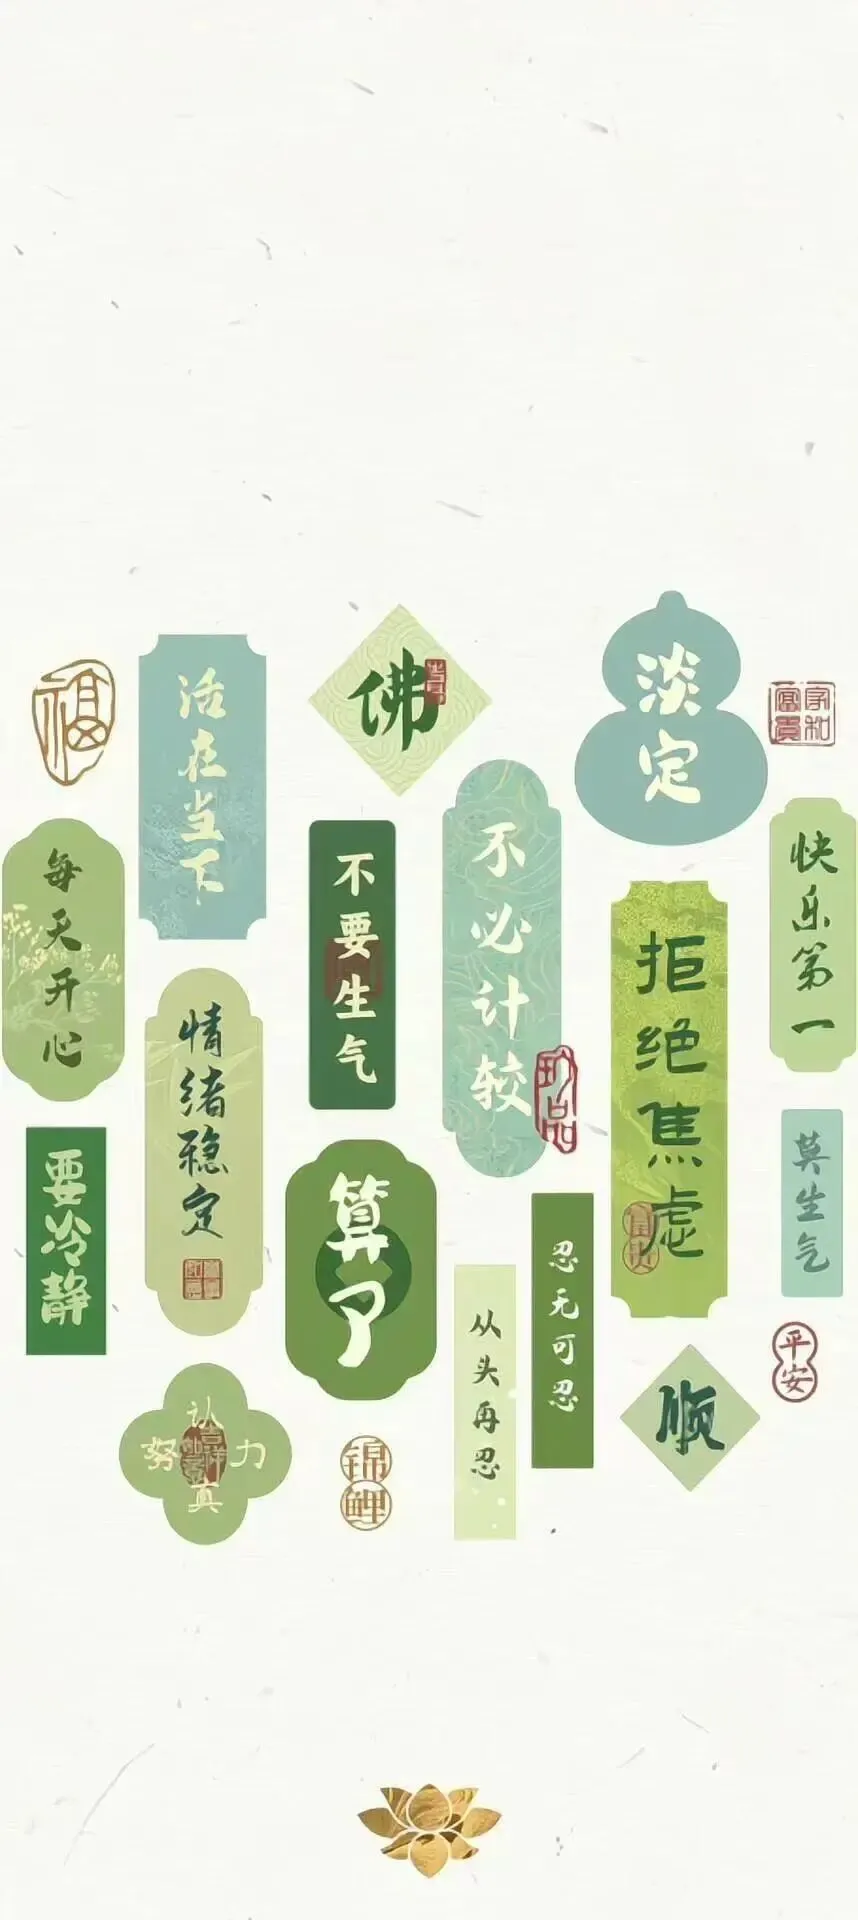 福
活在当下
佛
淡定
家和富贵
每天开心
不要生气
不必计较
拒绝焦虑
快乐第一
情绪稳定
要冷静
算了
忍无可忍
从头再忍
莫生气
平安
顺
认真
努力
锦鲤